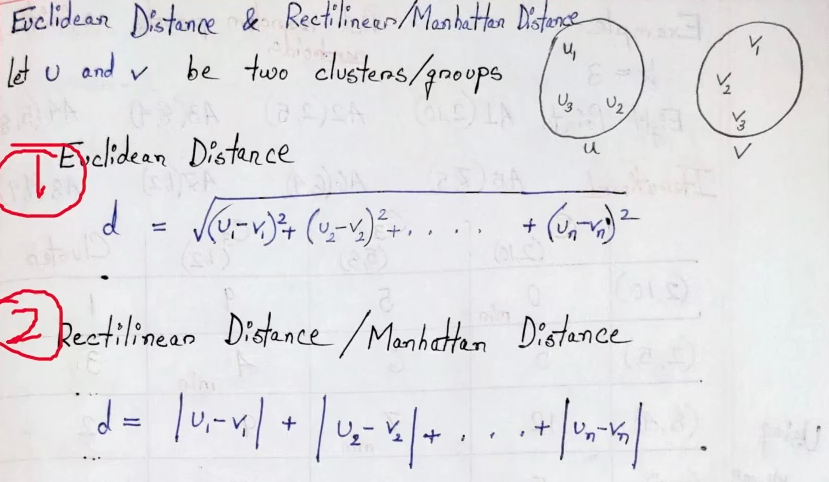 Euclidean Distance & Rectilinear/Manhattan Distance
let U and V be two clusters/groups
U₁
U₃ U₂
U
V₁
V₂
V₃
V
1 Euclidean Distance
d = √(U₁-V₁)²+ (U₂-V₂)²+. . . . . + (Uₙ-Vₙ)²
2 Rectilinear Distance/Manhattan Distance
d = |U₁-V₁| + |U₂-V₂| + . . . . + |Uₙ-Vₙ|